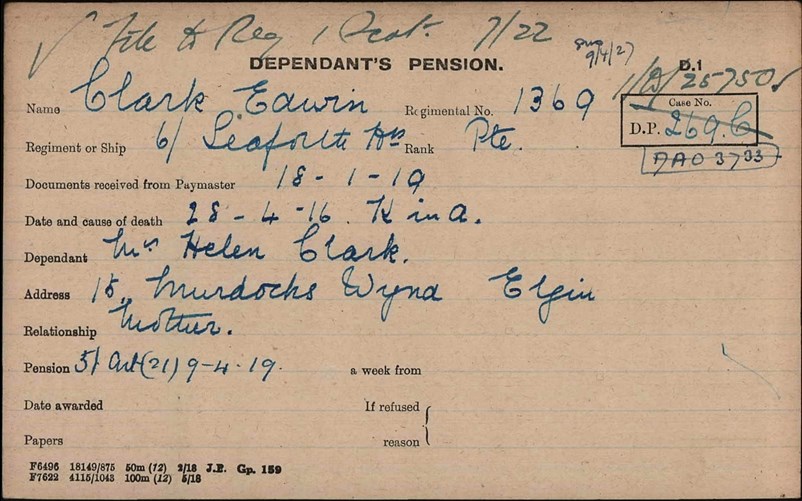 File to Reg 1 Scot. 7/22
9/4/27
DEPENDANT'S PENSION. D.1
1/D/25750
Name Clark Edwin Regimental No. 1369
Case No.
D.P. 269.C
Regiment or Ship 6/ Seaforth Hrs Rank Pte.
Documents received from Paymaster 18-1-19
Date and cause of death 28-4-16. K in A.
Dependant Mrs Helen Clark.
Address 15, Murdochs Wynd Elgin
Relationship Mother.
Pension 5/ Art (21) 9-4-19. a week from
Date awarded If refused
Papers reason
F6496 18149/875 50m (12) 2/18 J.P. Gp. 159
F7622 4115/1043 100m (12) 5/18